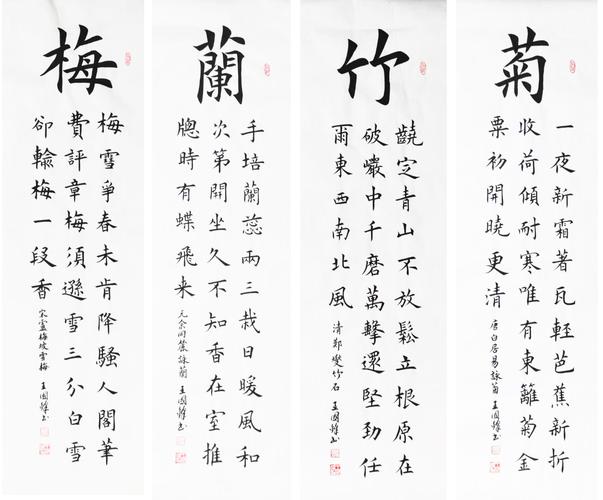 梅
梅雪爭春未肯降騷人閣筆
費評章梅須遜雪三分白雪
卻輸梅一段香
宋盧梅坡雪梅 王國书
蘭
手培蘭蕊兩三栽日暖風和
次第開坐久不知香在室推
牕時有蝶飛来
元余同麓詠蘭 王國书
竹
齩定青山不放鬆立根原在
破巖中千磨萬擊還堅勁任
爾東西南北風
清鄭燮竹石 王國书
菊
一夜新霜著瓦輕芭蕉新折
收荷傾耐寒唯有東籬菊金
粟初開曉更清
唐白居易詠菊 王國书